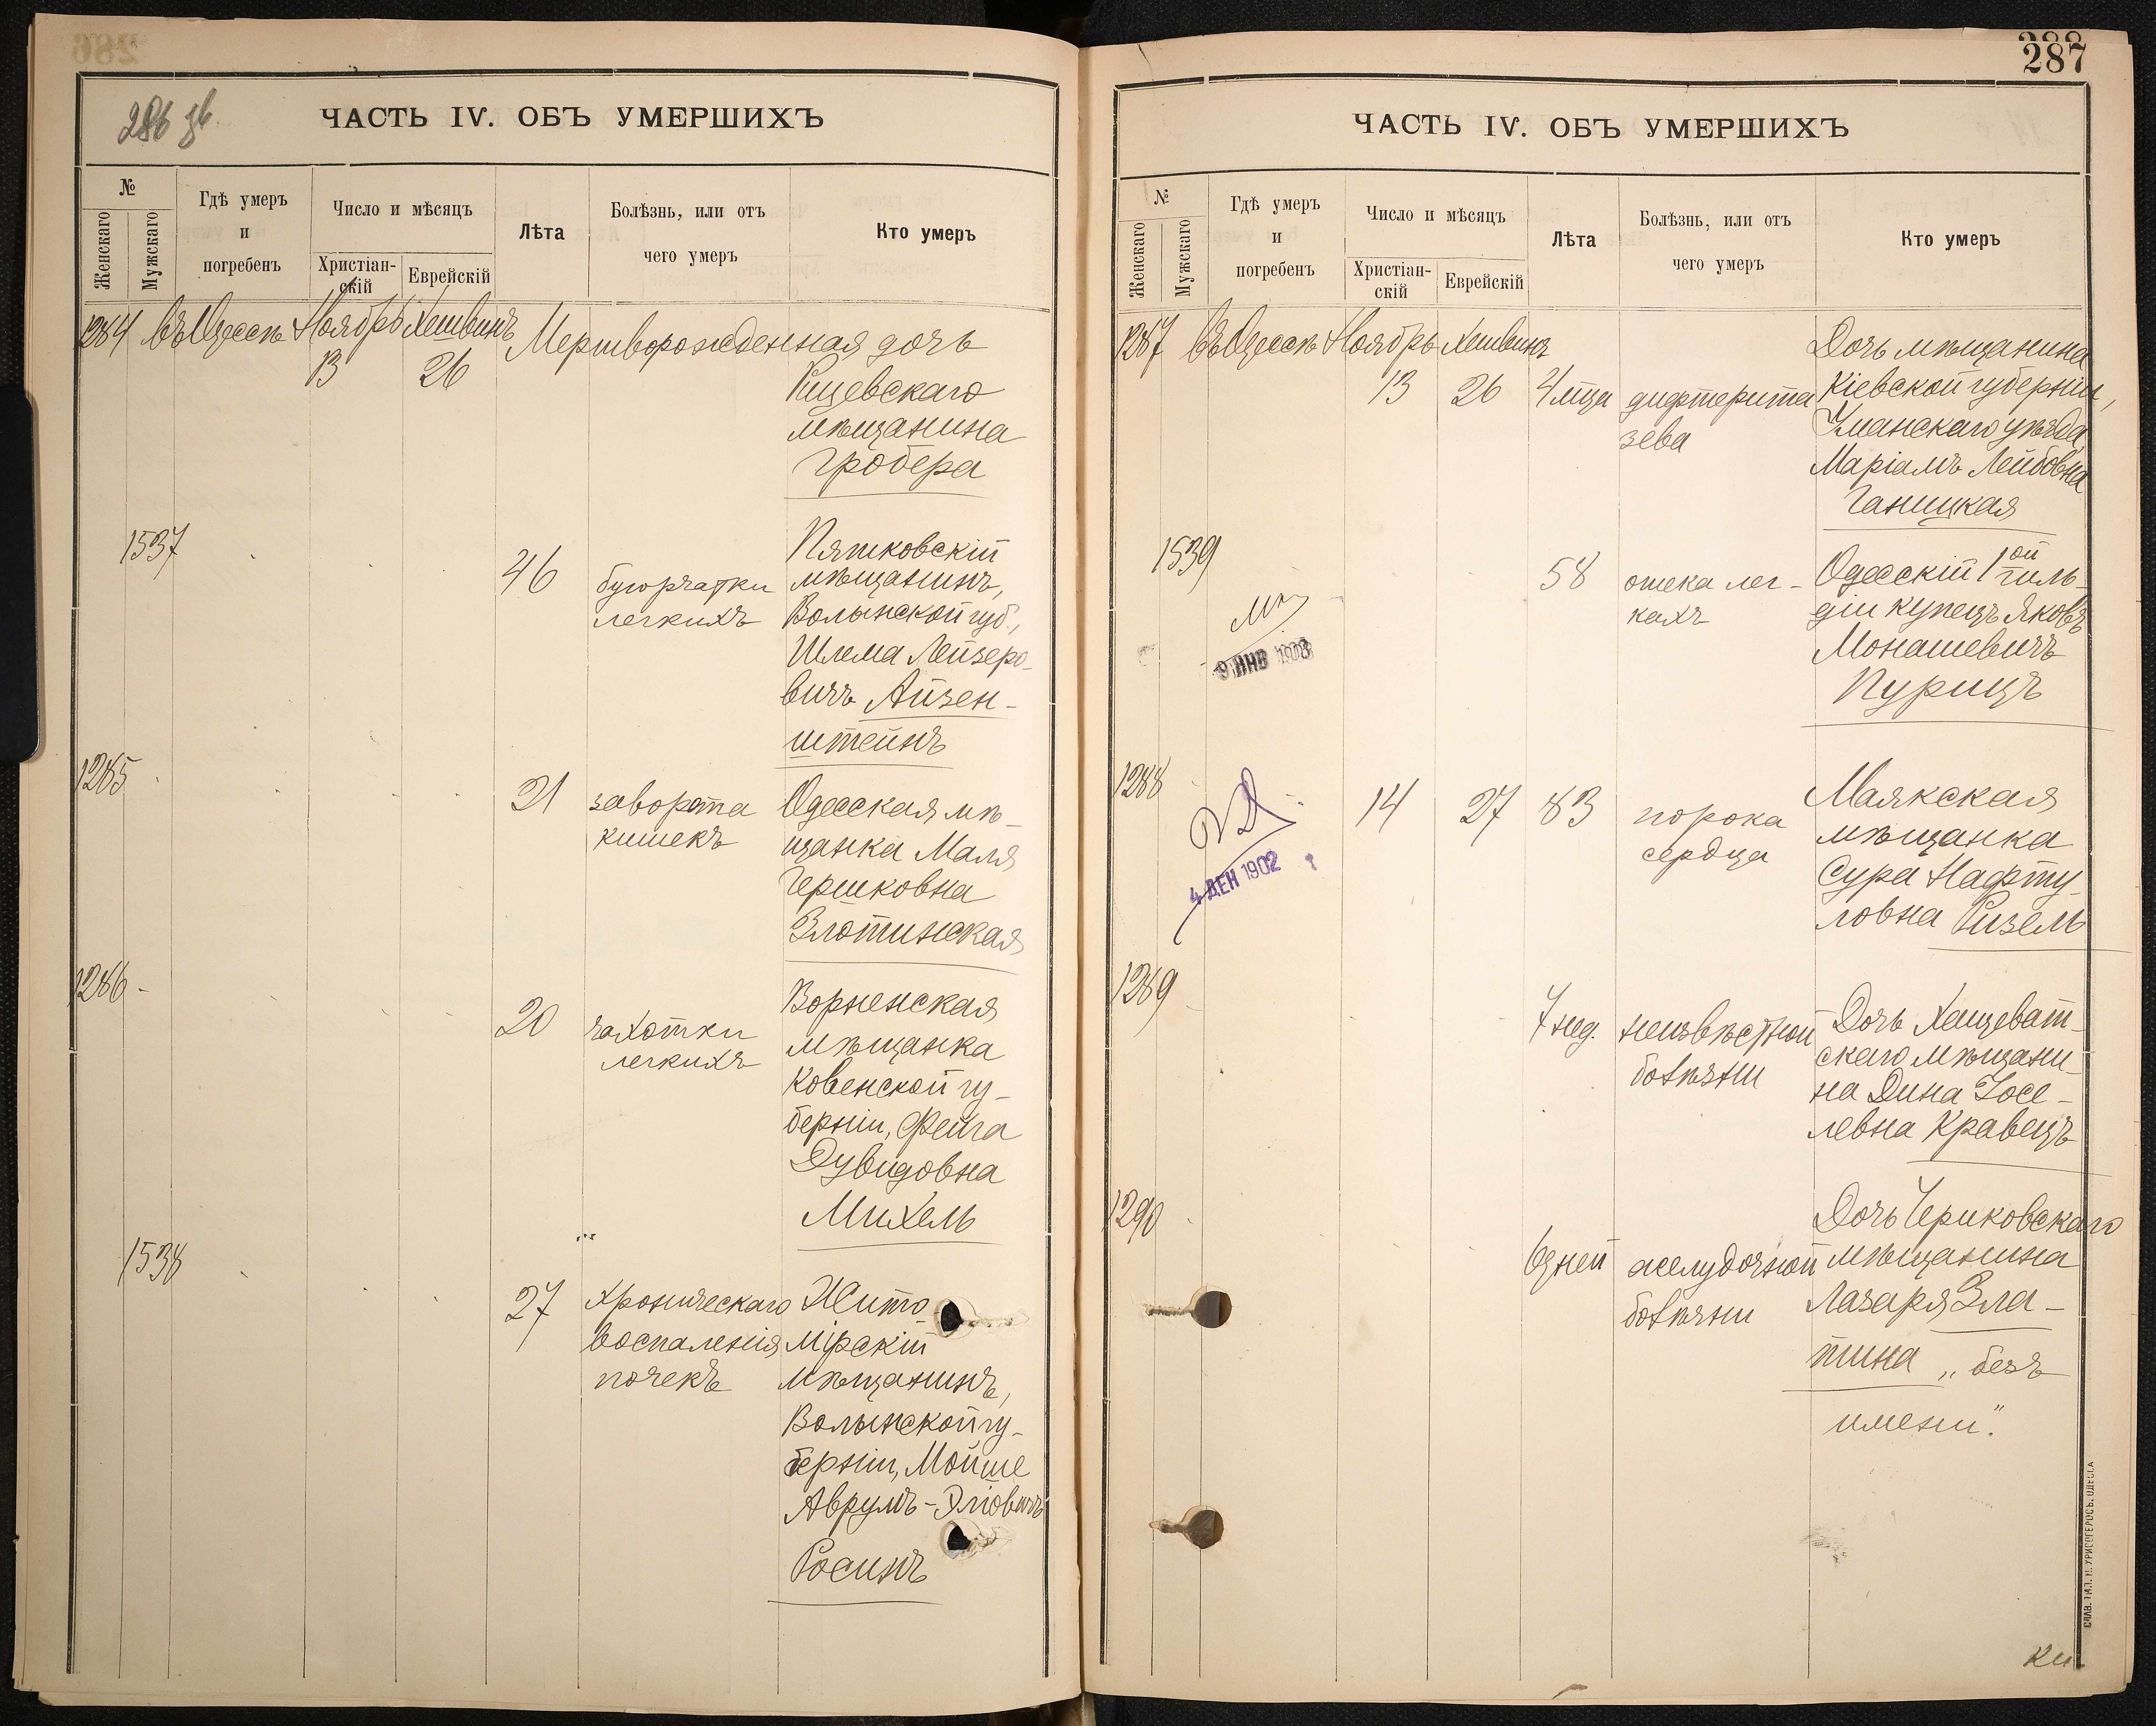 286 зв.
ЧАСТЬ IV. ОБЪ УМЕРШИХЪ
№
Женскаго
Мужскаго
Гдѣ умеръ
и
погребенъ
Число и мѣсяцъ
Христіан-
скій
Еврейскій
Лѣта
Болѣзнь, или отъ
чего умеръ
Кто умеръ
1284 въ Одессѣ Ноябрь Хешвинъ Мертворожденная дочь
13 26
мѣщанина
Гробера
1537
46
бугорчатки
легкихъ
Пятковскій
мѣщанинъ,
Волынской губ.,
Шлема Лейзеро-
вичъ Айзен-
штейнъ
1285
21
заворота
кишекъ
Одесская мѣ-
щанка Маля
Гершковна
Злотинская
1286
20
чахотки
легкихъ
Ворненская
мѣщанка
Ковенской гу-
берніи, Фейга
Дувидовна
Михель
1538
27
хроническаго
воспаленія
почекъ
Жито-
мірскій
мѣщанинъ,
Волынской гу-
берніи, Мойше
Аврумъ-Эліовичъ
Росинъ
287
ЧАСТЬ IV. ОБЪ УМЕРШИХЪ
№
Женскаго
Мужскаго
Гдѣ умеръ
и
погребенъ
Число и мѣсяцъ
Христіан-
скій
Еврейскій
Лѣта
Болѣзнь, или отъ
чего умеръ
Кто умеръ
1287 въ Одессѣ Ноябрь Хешвинъ
13 26 4 мца
дифтерита
зева
Дочь мѣщанина
Кіевской губерніи,
Уманскаго уѣзда
Маріамъ Лейбовна
Ганицкая
1539
9 ЯНВ 1908
58
отека лег-
кахъ
Одесскій 1ой гиль-
діи купецъ Яковъ
Монашевичъ
Пурицъ
1288
4 ДЕН 1902
14 27 83
порока
сердца
Маякская
мѣщанка
Сура Нафту-
ловна Ризель
1289
7 нед.
неизвѣстной
болѣзни
Дочь Хащеват-
скаго мѣщани-
на Дина Іосе-
левна Кравецъ
1290
6 дней
желудочной
болѣзни
Дочь Чериковскаго
мѣщанина
Лазаря Зла-
тина „безъ
имени".
СЛАВ. ТИП. Н. ХРИСОГЕЛОСЪ. ОДЕССА